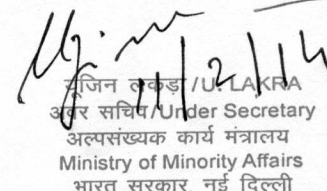 11/2/14
यूजिन लकड़ा/U. LAKRA
अवर सचिव/Under Secretary
अल्पसंख्यक कार्य मंत्रालय
Ministry of Minority Affairs
भारत सरकार, नई दिल्ली